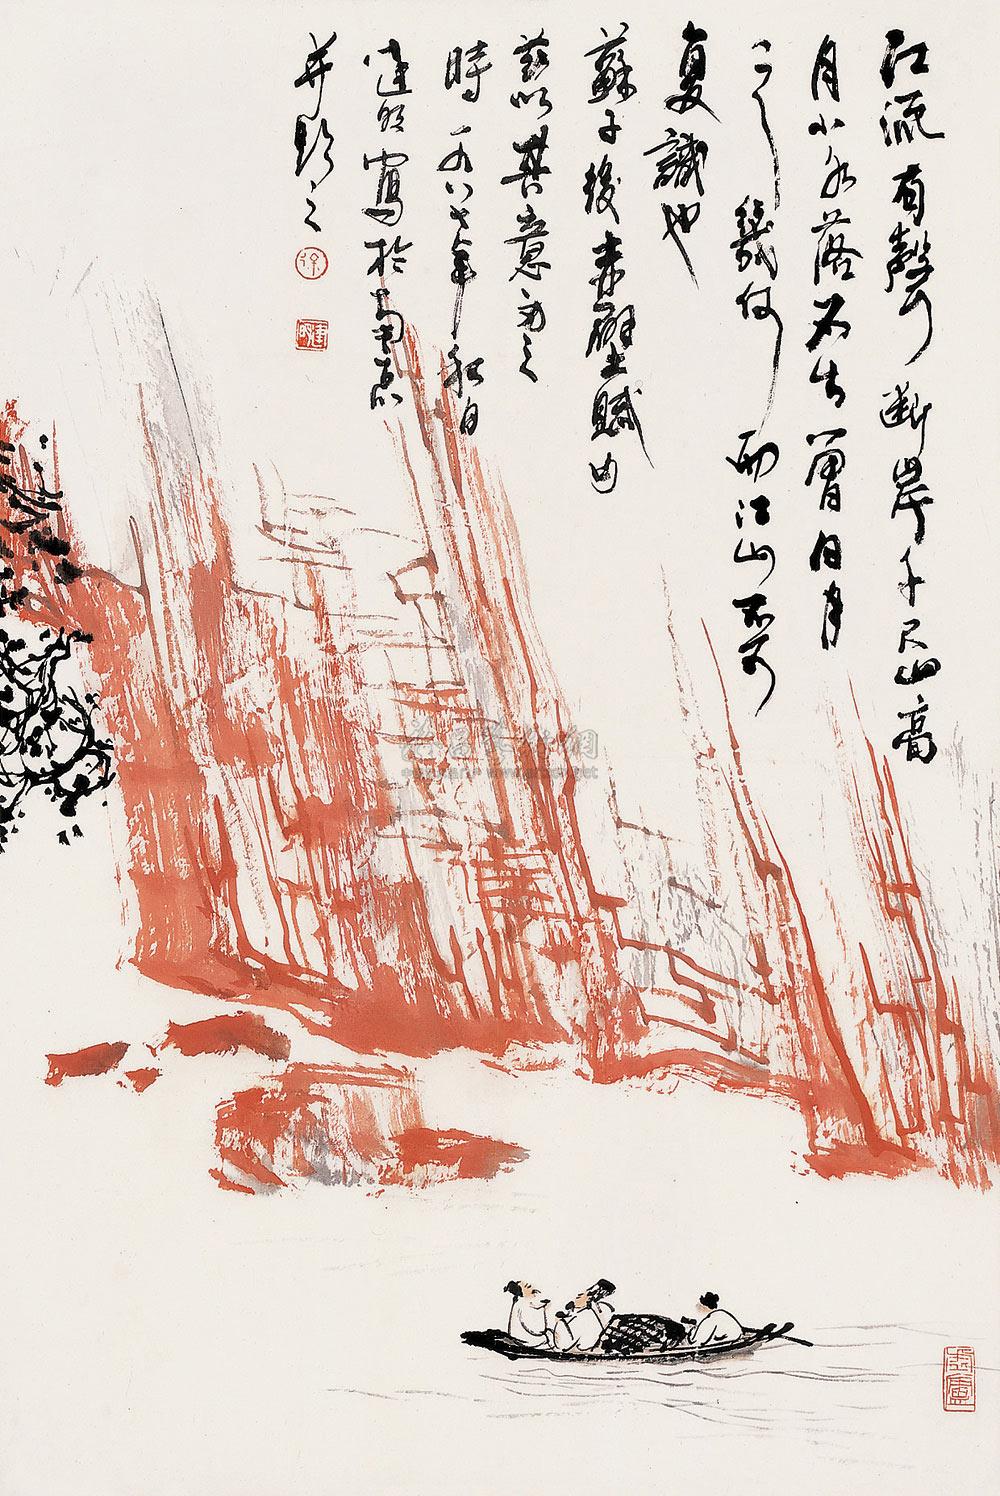 江流有聲斷岸千尺山高
月小水落石出曾日月
之幾何而江山不可
复識也
蘇子後赤壁賦句
茲以其意為之
時一九八七年秋日
建明寫於南京
并之
徐
建明